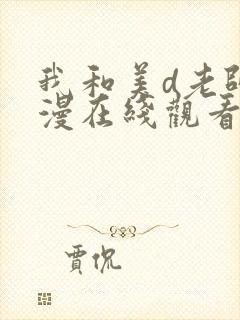 我和美d老師
漫在綫觀看
賈侃